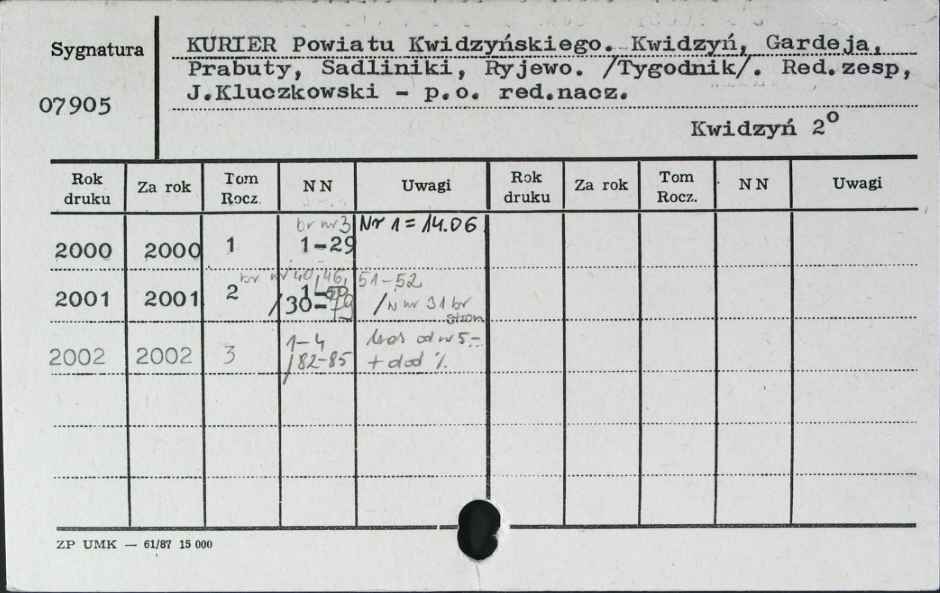 Sygnatura
07905
KURIER Powiatu Kwidzyńskiego. Kwidzyń, Gardeja,
Prabuty, Sadliniki, Ryjewo. /Tygodnik/. Red.zesp,
J.Kluczkowski - p.o. red.nacz.
Kwidzyń 2°
Rok druku Za rok Tom Rocz. N N Uwagi Rok druku Za rok Tom Rocz. N N Uwagi
br nr 3 Nr 1 = 14.06
2000 2000 1 1-29
br nr 40, 46, 51-52
2001 2001 2 1-50
/30=79 /w nr 31 br
stron
1-4
2002 2002 3 /82-85 + dod
ZP UMK — 61/87 15 000